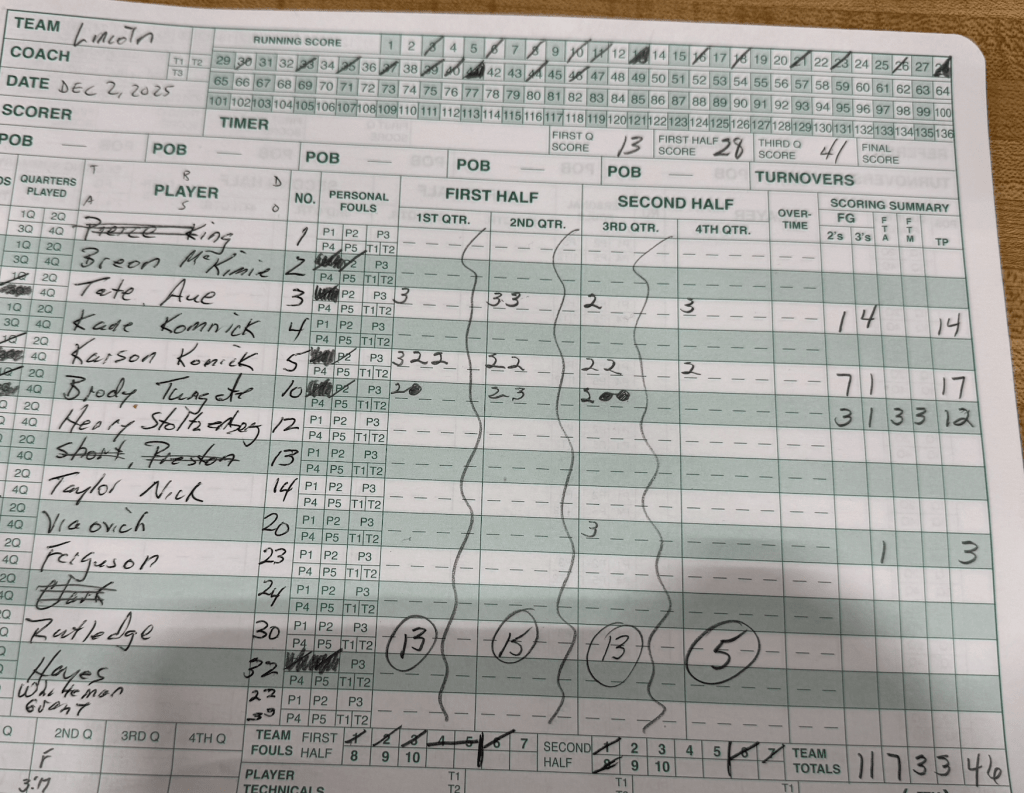 TEAM Lincoln
RUNNING SCORE 1 2 3 4 5 6 7 8 9 10 11 12 13 14 15 16 17 18 19 20 21 22 23 24 25 26 27 28
COACH T1 T2 T3
29 30 31 32 33 34 35 36 37 38 39 40 41 42 43 44 45 46 47 48 49 50 51 52 53 54 55 56 57 58 59 60 61 62 63 64
DATE DEC 2, 2025
65 66 67 68 69 70 71 72 73 74 75 76 77 78 79 80 81 82 83 84 85 86 87 88 89 90 91 92 93 94 95 96 97 98 99 100
101 102 103 104 105 106 107 108 109 110 111 112 113 114 115 116 117 118 119 120 121 122 123 124 125 126 127 128 129 130 131 132 133 134 135 136
SCORER TIMER
FIRST Q SCORE 13 FIRST HALF SCORE 28 THIRD Q SCORE 41 FINAL SCORE
POB — POB — POB — POB — POB — TURNOVERS
QUARTERS PLAYED T A R S D O PLAYER NO. PERSONAL FOULS FIRST HALF SECOND HALF OVER-TIME SCORING SUMMARY
1ST QTR. 2ND QTR. 3RD QTR. 4TH QTR. FG 2's 3's FTA FTM TP
1Q 2Q 3Q 4Q Pierce King 1 P1 P2 P3 P4 P5 T1 T2
1Q 2Q 3Q 4Q Breon McKimie 2 P3 P4 P5 T1 T2
1Q 2Q 4Q Tate, Aue 3 P2 P3 P4 P5 T1 T2 3 33 2 3 1 4 14
1Q 2Q 3Q 4Q Kade Komnick 4 P1 P2 P3 P4 P5 T1 T2
1Q 2Q 4Q Karson Konick 5 P2 P3 P4 P5 T1 T2 322 22 22 2 7 1 17
2Q 4Q Brody Tungate 10 P2 P3 P4 P5 T1 T2 20 23 200 3 1 3 3 12
2Q 4Q Henry Stoltzenberg 12 P1 P2 P3 P4 P5 T1 T2
2Q 4Q Short, Preston 13 P1 P2 P3 P4 P5 T1 T2
2Q 4Q Taylor Nick 14 P1 P2 P3 P4 P5 T1 T2
2Q 4Q Viaovich 20 P1 P2 P3 P4 P5 T1 T2 3 1 3
2Q 4Q Ferguson 23 P1 P2 P3 P4 P5 T1 T2
2Q 4Q 24 P1 P2 P3 P4 P5 T1 T2
2Q Rutledge 30 P1 P2 P3 P4 P5 T1 T2 13 15 13 5
Hayes 32 P3 P4 P5 T1 T2
Whiteman 22
Grant 33 P1 P2 P3 P4 P5 T1 T2
Q 2ND Q 3RD Q 4TH Q
TEAM FOULS FIRST HALF 1 2 3 4 5 6 7 8 9 10
SECOND HALF 1 2 3 4 5 6 7 8 9 10
TEAM TOTALS 11 7 3 3 46
F
3:17
PLAYER TECHNICALS T1 T2 T1 T1